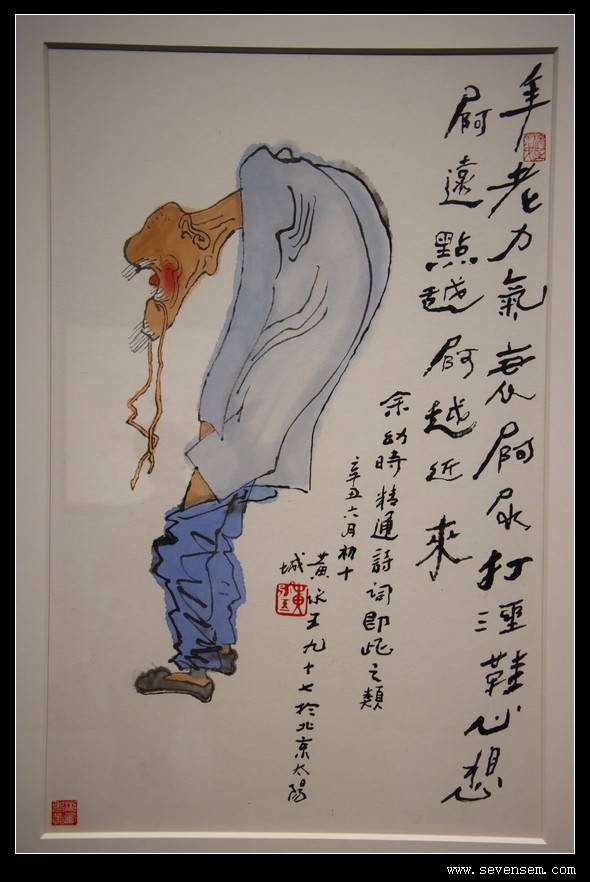 年老力氣衰屙尿打溼鞋心想
屙遠點越屙越近來
余幼時精通詩詞即此之類
辛丑六月初十
黃永玉九十七於北京太陽
城
黃永玉
www.sevensem.com